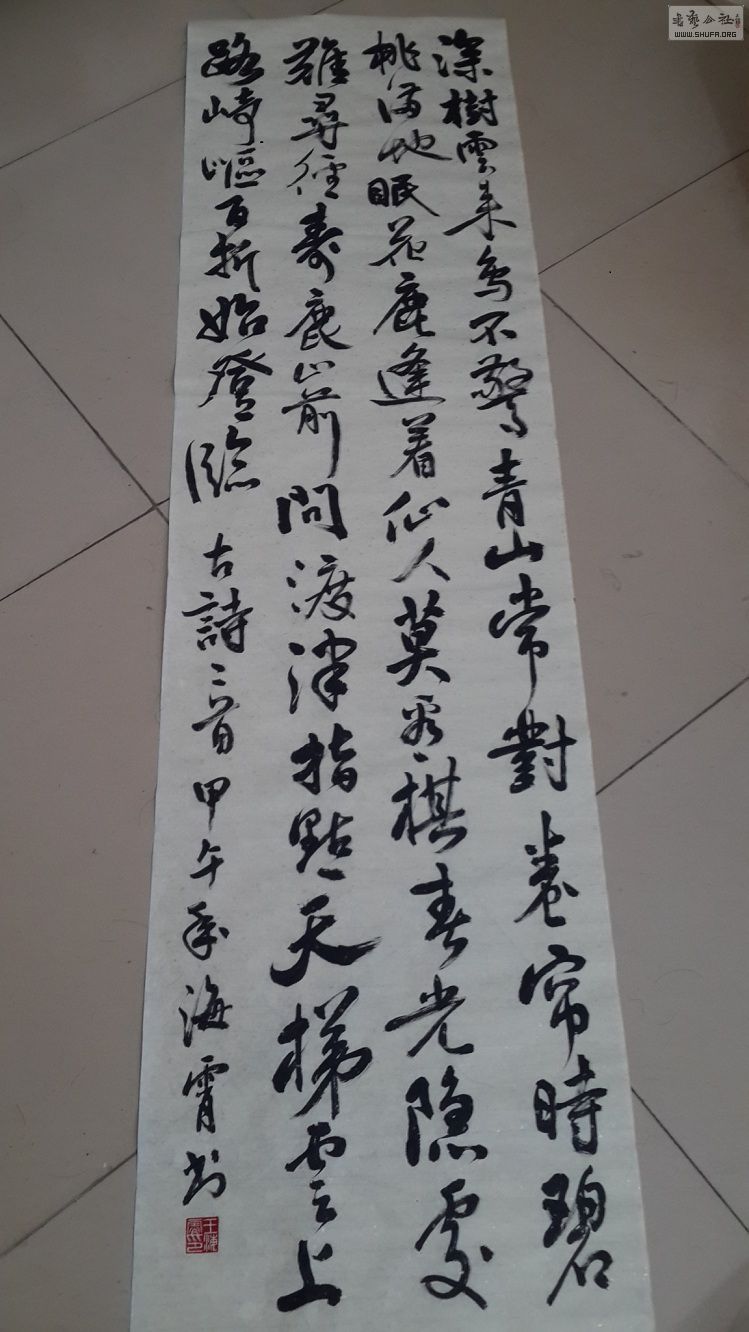 深樹雲来鳥不驚青山常對卷帘時碧
桃滿地眠花鹿逢着仙人莫看棋春光隐處
難尋徑壽鹿山前問渡津指點天梯雲上
路崎嶇百折始登臨 古詩三首 甲午年海霄书
王海霄印
书艺公社
WWW.SHUFA.ORG